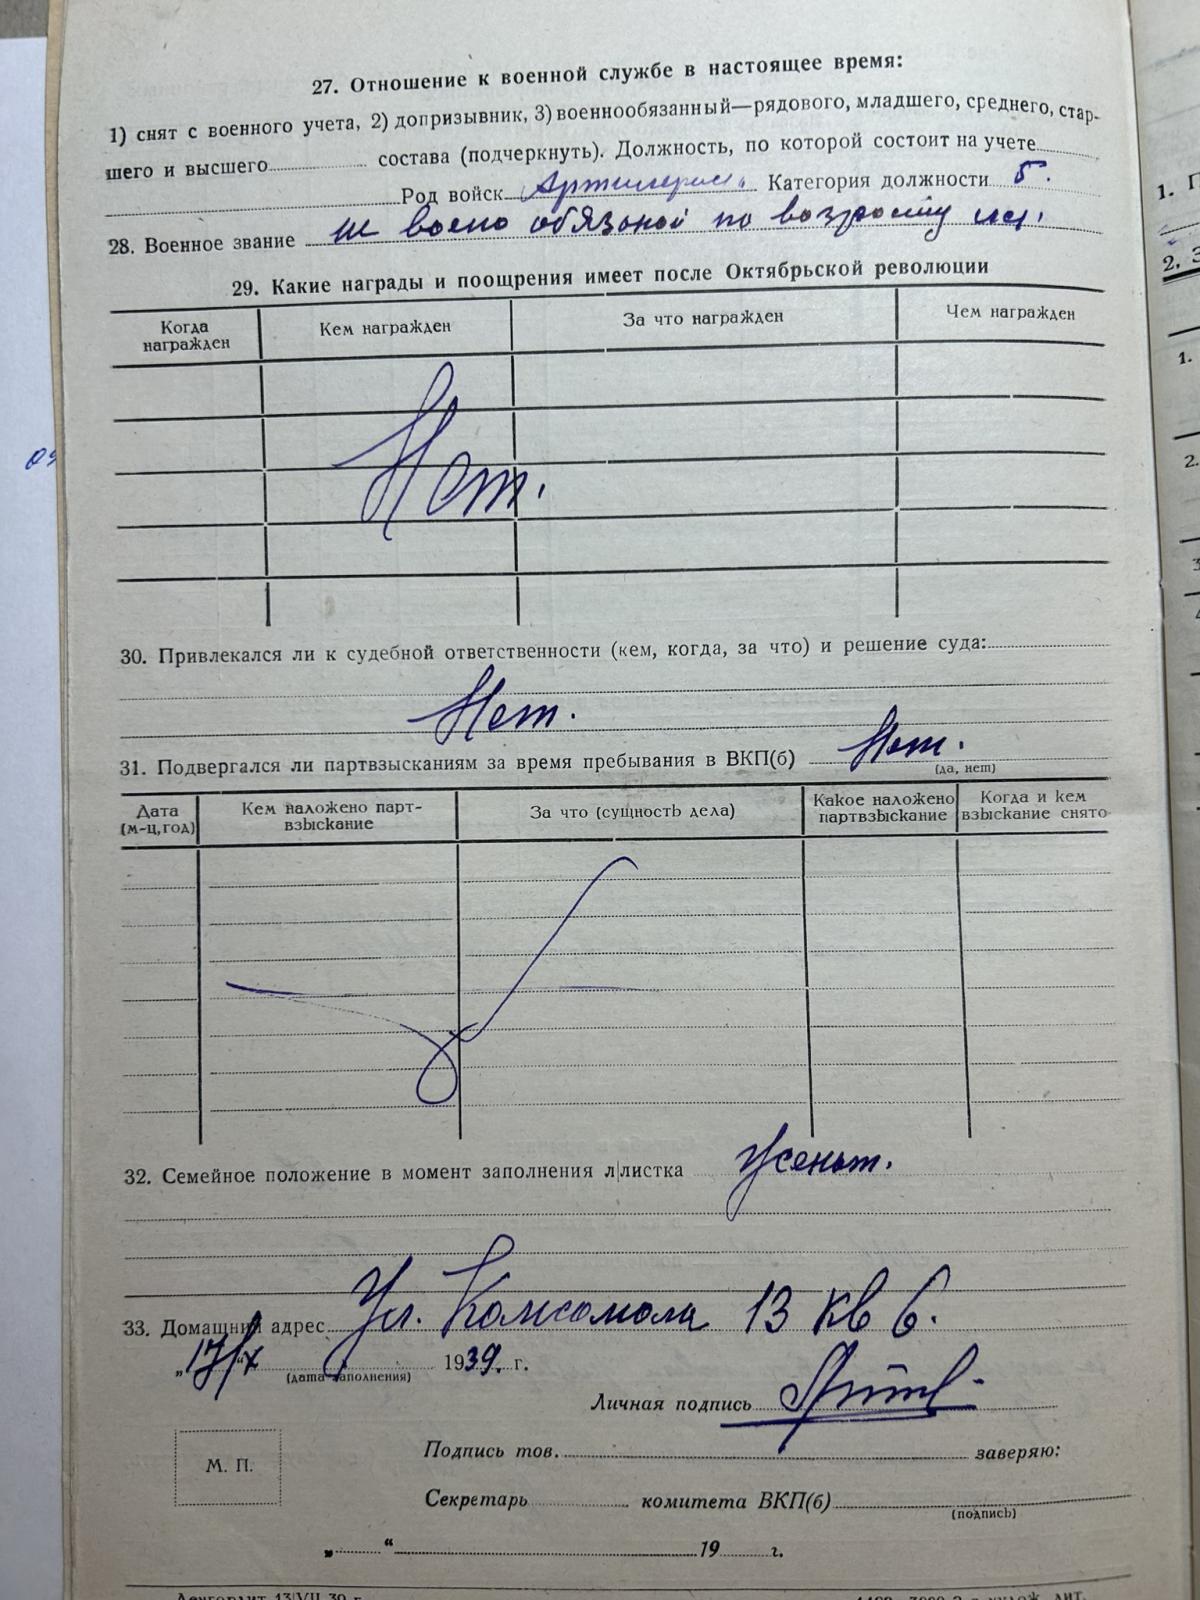 27. Отношение к военной службе в настоящее время:
1) снят с военного учета, 2) допризывник, 3) военнообязанный—рядового, младшего, среднего, стар-
шего и высшего состава (подчеркнуть). Должность, по которой состоит на учете
Род войск Артилерии. Категория должности 5.
28. Военное звание не воено обязоной по возросту
29. Какие награды и поощрения имеет после Октябрьской революции
Когда награжден Кем награжден За что награжден Чем награжден
Нет.
30. Привлекался ли к судебной ответственности (кем, когда, за что) и решение суда:
Нет.
31. Подвергался ли партвзысканиям за время пребывания в ВКП(б) Нет.
(да, нет)
Дата (м-ц, год) Кем наложено парт-взыскание За что (сущность дела) Какое наложено партвзыскание Когда и кем взыскание снято
32. Семейное положение в момент заполнения л|листка Женат.
33. Домашний адрес Ул. Комсомола 13 кв 6.
„17/X 1939. г.
(дата заполнения)
Личная подпись
Подпись тов. заверяю:
М. П.
Секретарь комитета ВКП(б)
(подпись)
„ “ 19 г.
Ленгорлит 13|VII 39 г.
1.
2.
1.
2.